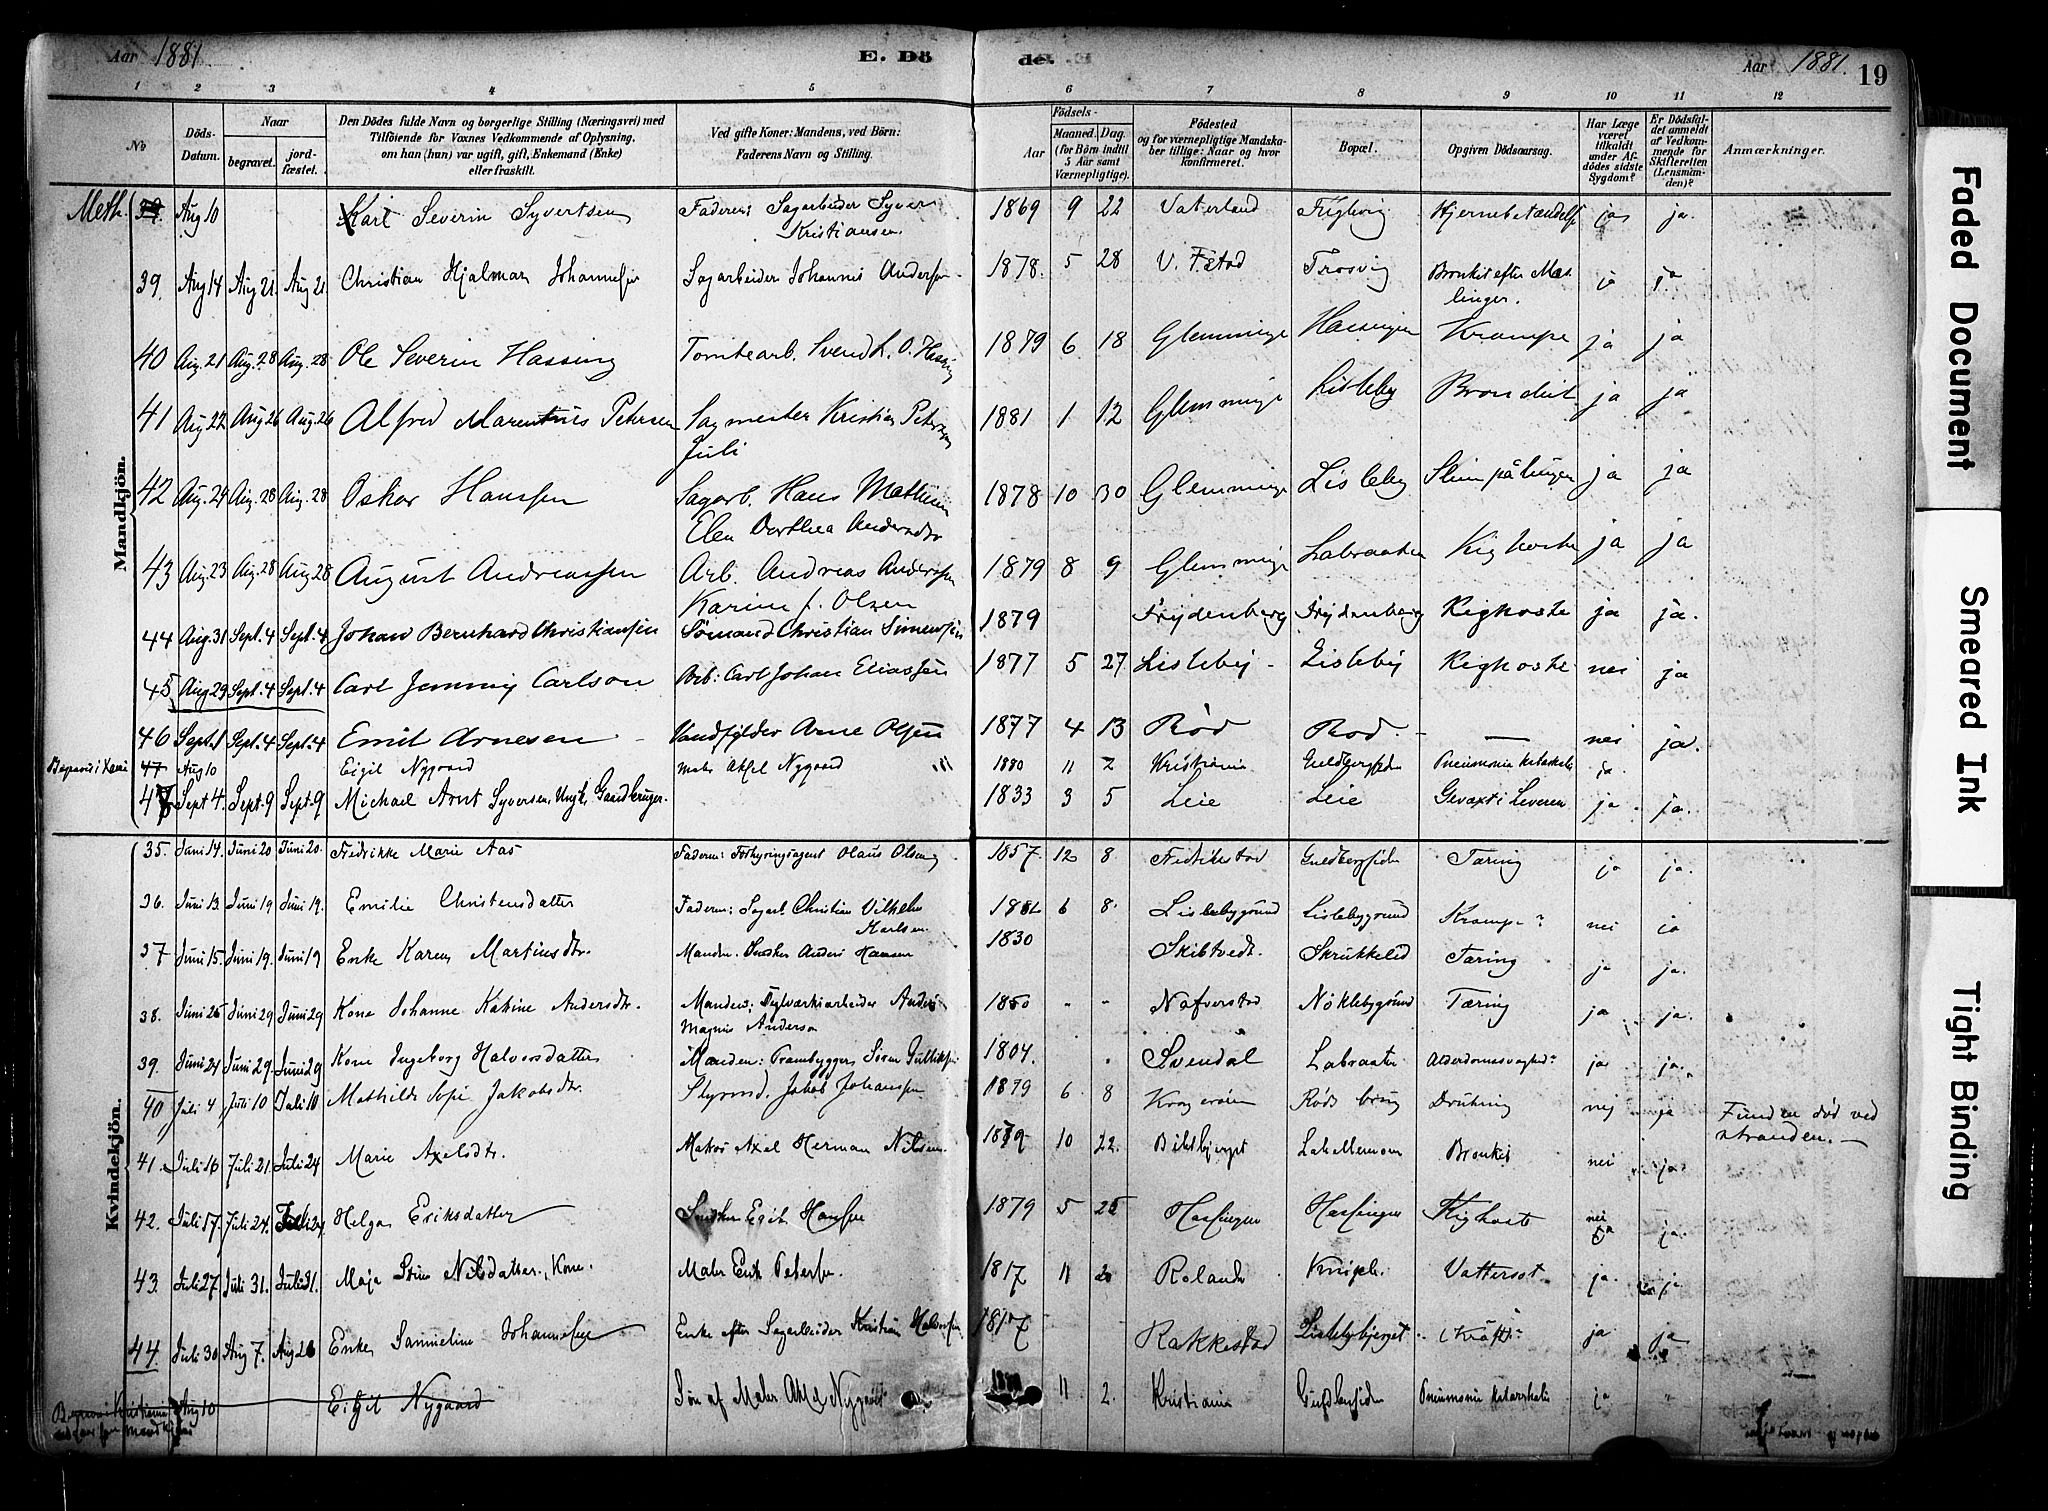 Aar 1881 E. Dö de. Aar 1881. 19
1 2 3 4 5 6 7 8 9 10 11 12
No
Döds-Datum.
Naar
begravet.
jordfæstet.
Den Dödes fulde Navn og borgerlige Stilling (Næringsvei) med
Tilföiende for Voxnes Vedkommende af Oplysning,
om han (hun) var ugift, gift, Enkemand (Enke)
eller fraskilt.
Ved gifte Koner: Mandens, ved Börn:
Faderens Navn og Stilling.
Födsels-
Aar
Maaned. Dag.
(for Börn indtil
5 Aar samt
Værnepligtige).
Födested
og for værnepligtige Mandskaber tillige: Naar og hvor
konfirmeret.
Bopæl.
Opgiven Dödsaarsag.
Har Læge
været
tilkaldt
under Afdödes sidste
Sygdom?
Er Dödsfaldet anmeldt
af Vedkommende for
Skifteretten
(Lensmanden)?
Anmærkninger.
Mandkjön.
Meth. Aug 10 Karl Severin Syvertsen Faderen: Sagarbeider Syver Kristiansen. 1869 9 22 Vaterland Hjernebetændelse ja ja.
39. Aug 14 Aug 21. Aug 21. Christian Hjalmar Johannesen Sagarbeider Johannes Andersen 1878. 5 28 V. Fstad Trosvig Bronkit efter Mæslinger. ja ja
40 Aug. 21 Aug. 28 Aug. 28 Ole Severin Hassing Tomtearb. Svend L. O. Hassing 1879 6 18 Glemminge Hassingen Krampe ja ja
41 Aug 22 Aug 26 Aug. 26 Alfred Marentius Petersen Sagmester Kristian Petersen Juli 1881 1 12 Glemminge Lisleby ja ja
42 Aug. 24 Aug. 28 Aug. 28 Oskar Hanssen Sagarb. Hans Mathisen Elen Dorthea Andersdtr 1878 10 30 Glemminge Lisleby Slim på lungen ja ja
43 Aug. 23 Aug. 28 Aug 28 August Andreassen Arb. Andreas Anderssen Karine f. Olsen 1879 8 9 Glemminge Labraaten Kighoste ja ja
44 Aug. 31 Sept. 4 Sept. 4 Johan Bernhard Christiansen Sömand Christian Simensen 1879 Frydenberg Frydenberg Kighoste ja ja.
45 Aug 29 Sept. 4 Sept. 4 Carl Jemmig Carlson Arb: Carl Johan Eliassen 1877 5 27 Lisleby Lisleby Kighoste nei ja
46 Sept. 1 Sept. 4 Sept. 4 Emil Arnesen Vandfylder Arne Olsen 1877 4 13 Röd Rod — nei ja.
47 Aug 10 Eigil Nygaard Maler Axel Nygaard 1880 11 2 Kristiania Guldbergsiden Pneumonia katarrhalis ja
47 Sept 4. Sept. 9 Sept. 9 Michael Arnt Syversen, Ungk, Gaardbruger. 1833 3 5 Leie Leie Gevæxt i Leveren ja ja.
Kvindekjön.
35. Juni 14. Juni 20 Juni 20. Fredrikke Marie Aas Faderen: Forhyringsagent Olaus Olsen 1857. 12 8 Fredrikstad Guldbergsiden Tæring ja ja.
36. Juni 13. Juni 19 Juni 19. Emilie Christensdatter Faderen: Sagarb. Christian Vilhelm Karlsen. 1881 6 8. Lislebygrund Lislebygrund Krampe? nei ja
37 Juni 15. Juni 19. Juni 19 Enke Karen Martinsdtr. Manden. Snedker Anders Hansen 1830 Skibtvedt. Skrukkelid Tæring ja ja.
38. Juni 25 Juni 29 Juni 29 Kone Johanne Katrine Andersdtr. Manden: Teglværksarbeider Anders Magnus Anderson 1850 - - Nafverstad Nöklebygrund Tæring ja ja.
39. Juni 24 Juni 29. Juni 29 Kone Ingeborg Halvorsdatter Manden: Prambygger Sören Gulliksen 1804. Svendal Labraaten Alderdomssvaghed? ja ja.
40 Juli 4 Juli 10 Juli 10 Mathilde Sofie Jakobsdtr. Styrmd. Jakob Johansen 1879 6 8 Krageröen Röds brug Drukning nej ja Funden död ved stranden.—
41. Juli 16 Juli 21. Juli 24 Marie Axelsdtr. Matros Axel Herman Nilsen 1879 10 22. Bronkit nei ja.
42. Juli 17. Juli 24. Juli 24 Helga Eriksdatter Snedker Hansen 1879 5 25 Hassingen Hassingen Kighoste nei ja ja.
43. Juli 27 Juli 31. Juli 31. Maja Stina Nilsdatter, Kone. Maler Erik Petersen. 1817 11 20 Rolands Vattersot ja. ja
44. Juli 30 Aug 7. Enke Samueline Johannesen Enke efter Sagarbeider Kristian Halvorsen 1817 - Rakkestad Lislebybjerget Kräft ja ja
Aug 10 Eigil Nygaard Sön af Maler Axel Nygaard 11. 2. Kristiania Guldbergsiden Pneumonia katarrhalis ja "
Faded Document
Smeared Ink
Tight Binding